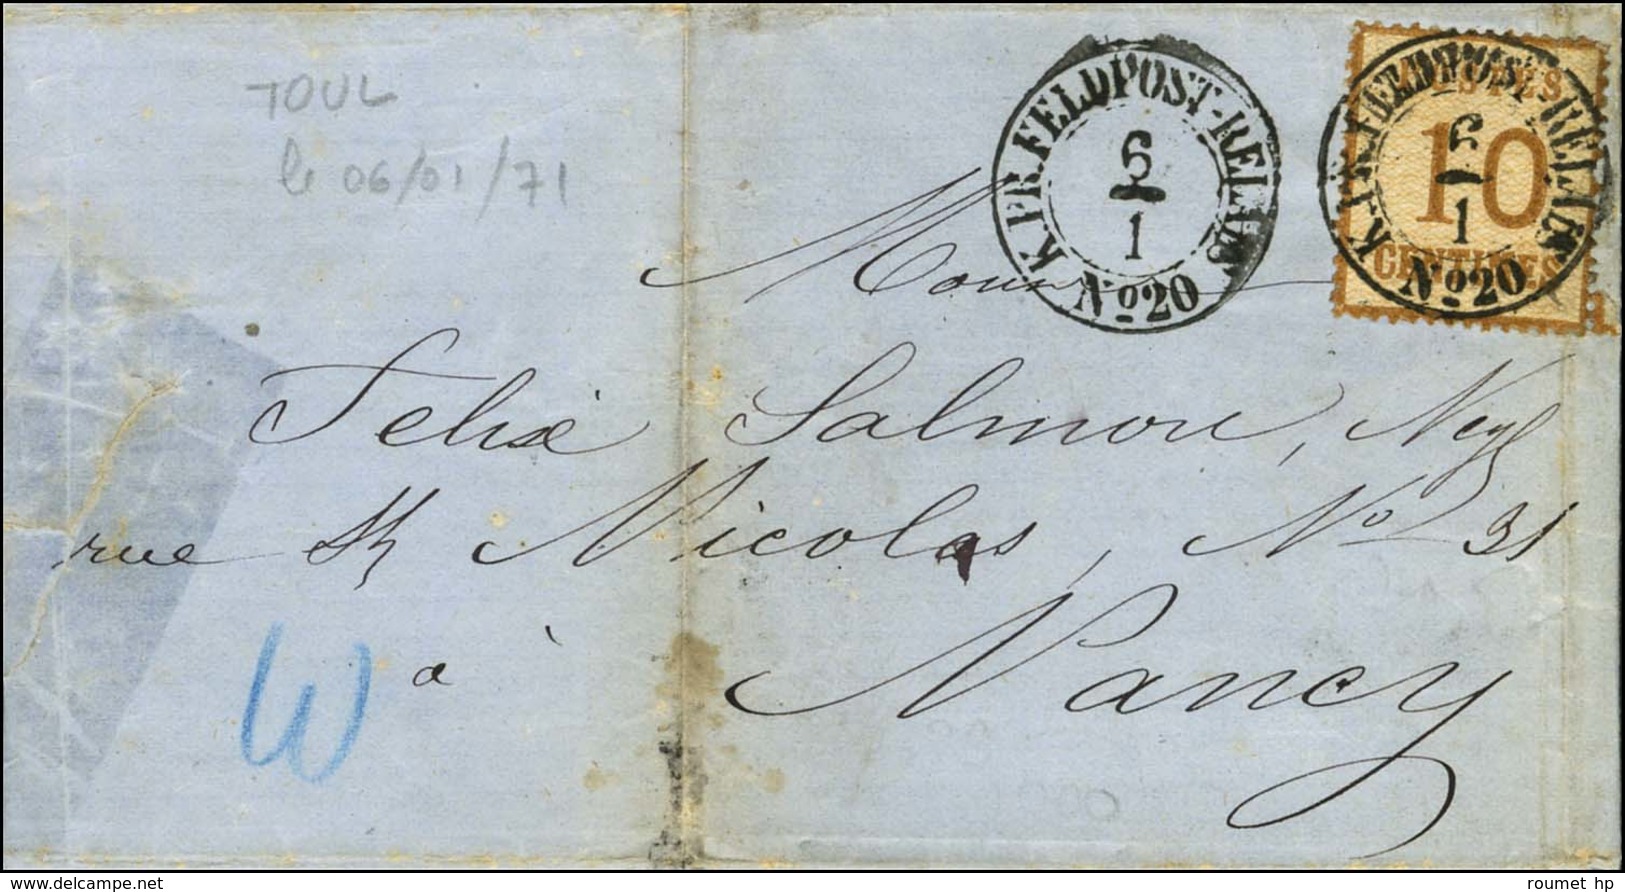 TOUL
le 06/01/71
K.PR.FELDPOST-RELAIS
6
1
No20
POSTES
10
CENTIMES
K.PR.FELDPOST-RELAIS
6
1
No20
Monsieur
Felix Salmon, Negt
rue St Nicolas, No 31
à Nancy
W
www.delcampe.net
roumet hp